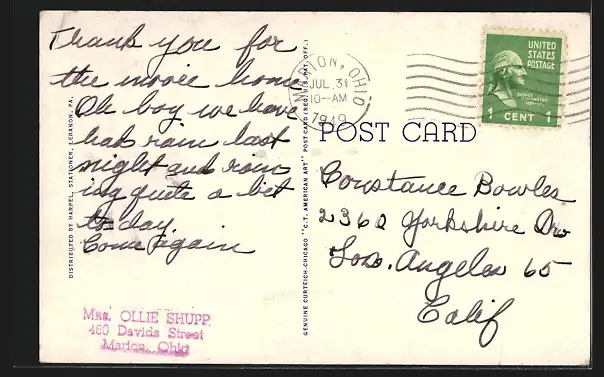 Thank you for
the movie home
Oh boy we have
had rain last
night and rain
ing quite a bit
to day.
Come again
Mrs. OLLIE SHUPP
460 Davids Street
Marion, Ohio
DISTRIBUTED BY HARPEL, STATIONER, LEBANON, PA.
GENUINE CURTEICH-CHICAGO "C.T. AMERICAN ART" POST CARD (REG. U.S. PAT. OFF.)
MARION, OHIO
JUL 31
10-AM
1949
UNITED
STATES
POSTAGE
1 CENT 1
POST CARD
Constance Bowles
2360 Yorkshire Drv
Los. Angeles 65
Calif